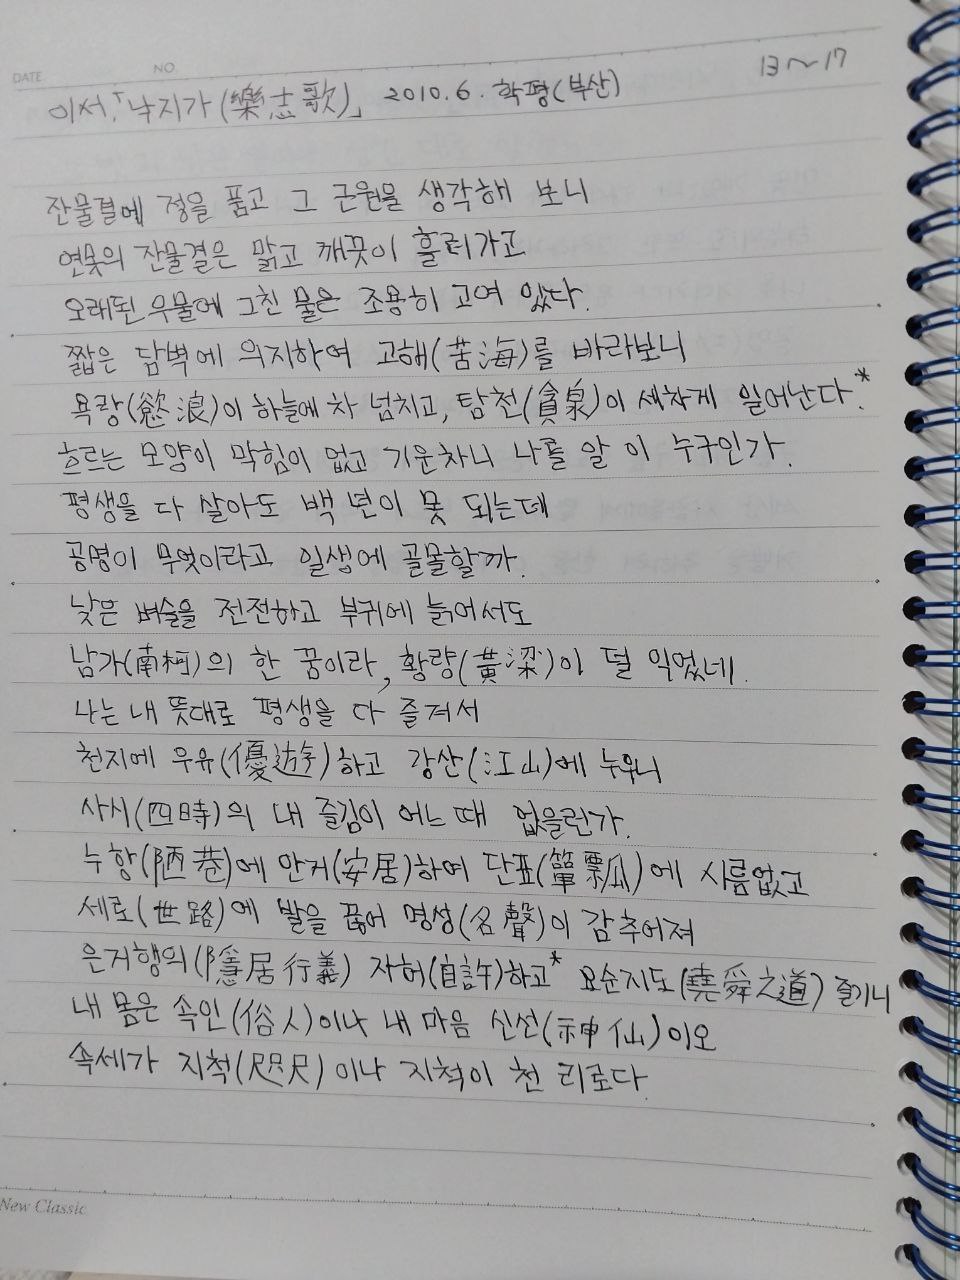 DATE. NO.
13~17
이서, 「낙지가(樂志歌)」 2010.6. 학평(부산)
잔물결에 정을 품고 그 근원을 생각해 보니
연못의 잔물결은 맑고 깨끗이 흘러가고
오래된 우물에 그친 물은 조용히 고여 있다.
짧은 담벽에 의지하여 고해(苦海)를 바라보니
욕랑(慾浪)이 하늘에 차 넘치고, 탐천(貪泉)이 세차게 일어난다*.
흐르는 모양이 막힘이 없고 기운차니 나를 알 이 누구인가.
평생을 다 살아도 백 년이 못 되는데
공명이 무엇이라고 일생에 골몰할까.
낮은 벼슬을 전전하고 부귀에 늙어서도
남가(南柯)의 한 꿈이라, 황량(黃粱)이 덜 익었네.
나는 내 뜻대로 평생을 다 즐겨서
천지에 우유(優遊)하고 강산(江山)에 누우니
사시(四時)의 내 즐김이 어느 때 없을런가.
누항(陋巷)에 안거(安居)하여 단표(簞瓢)에 시름없고
세로(世路)에 발을 끊어 명성(名聲)이 감추어져
은거행의(隱居行義) 자허(自許)하고* 요순지도(堯舜之道) 즐기니
내 몸은 속인(俗人)이나 내 마음 신선(神仙)이오
속세가 지척(咫尺)이나 지척이 천 리로다.
New Classic